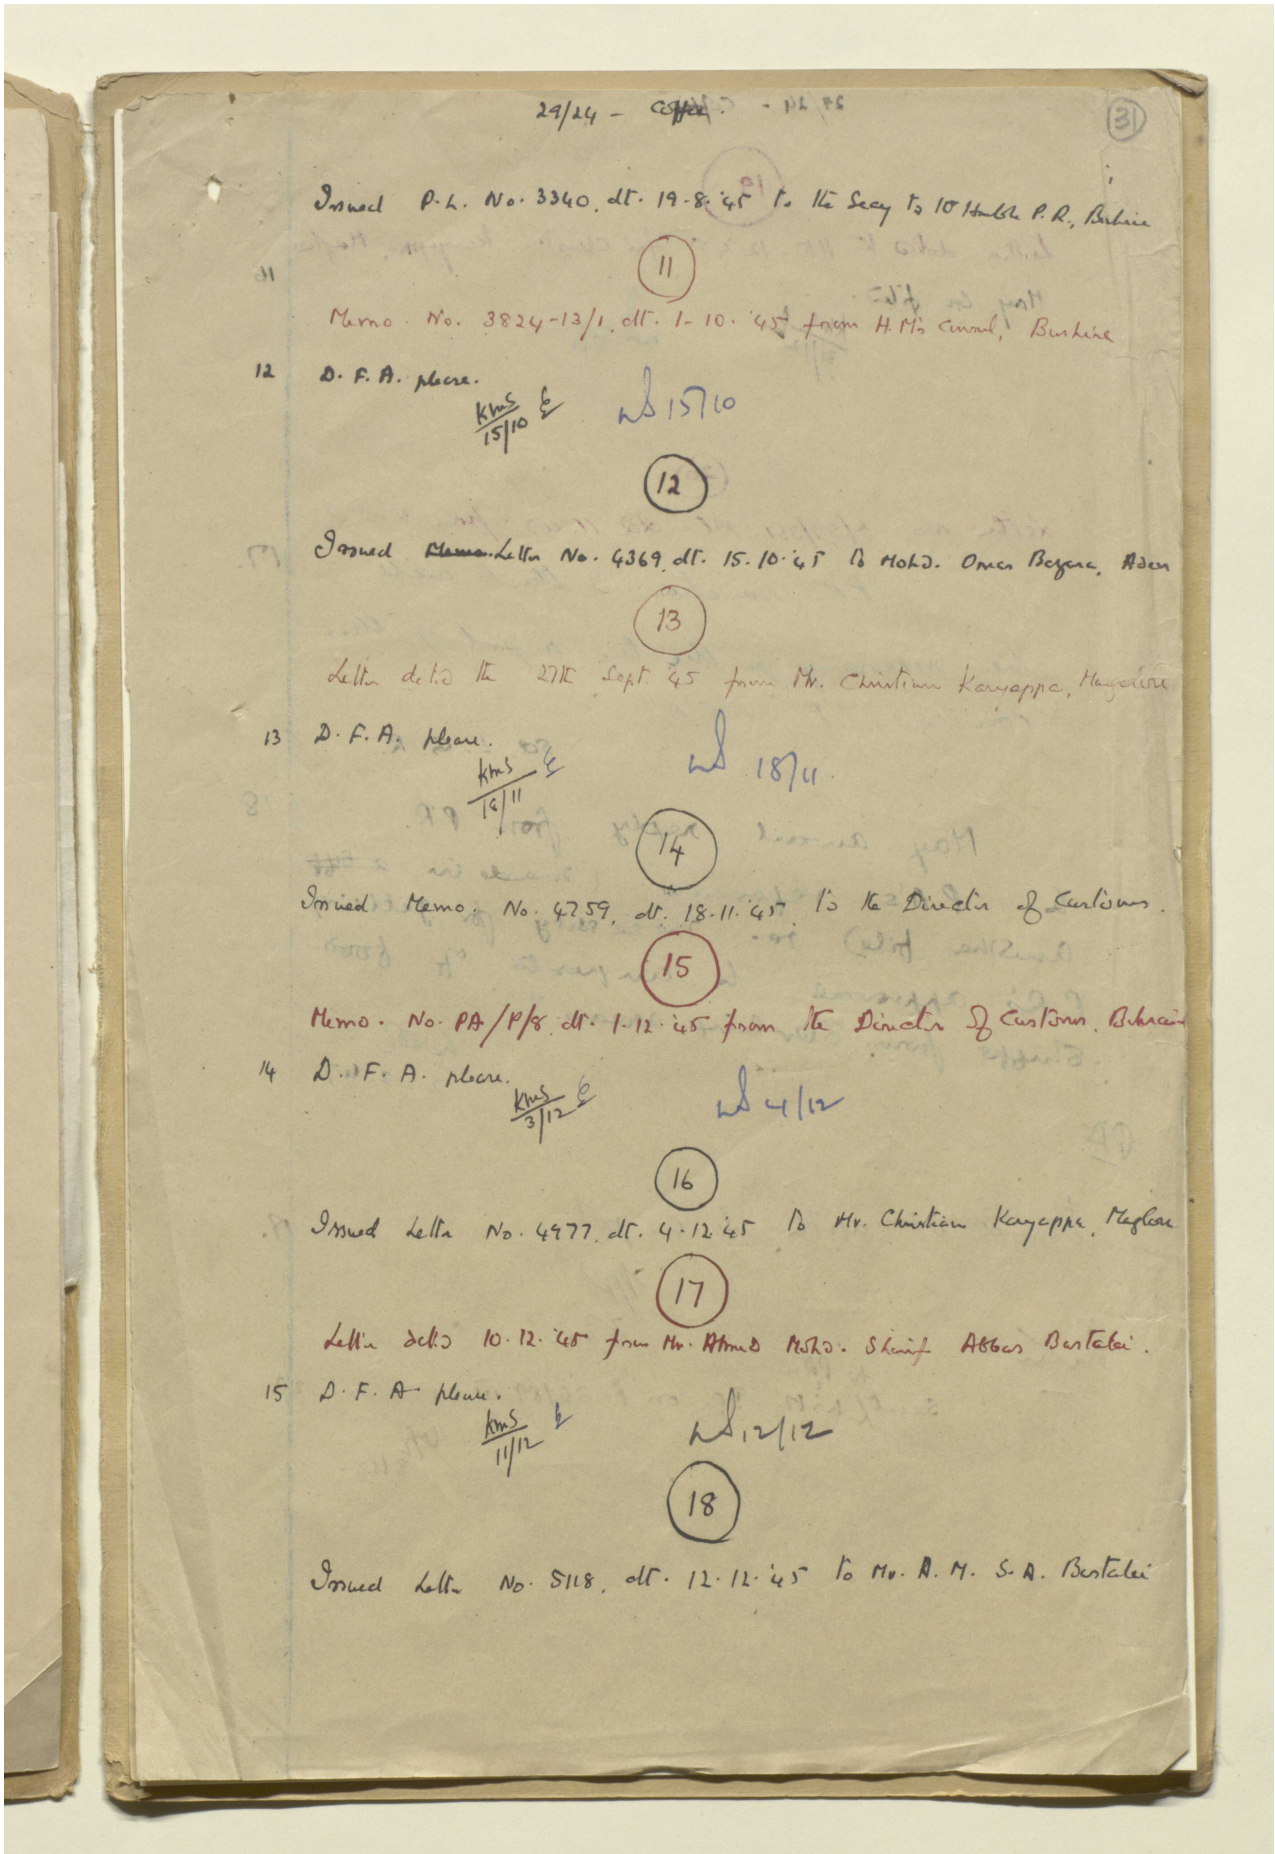 29/24 - Coffee.
31
Issued P.L. No. 3340, dt. 19-8-'45 to the Secy to the Hon'ble P.R., Bushire
11
Memo. No. 3824-13/1, dt. 1-10-'45 from H.M's Consul, Bushire
12 D. F. A. please.
KMS
15/10 15/10
12
Issued Letter No. 4369, dt. 15.10.'45 to Mohd. Omar Bazara, Aden
13
Letter dated the 27th Sept. '45 from Mr. Christian Karyappa, Mangalore
13 D. F. A. please.
KMS 18/11
14
Issued Memo. No. 4759, dt. 18-11-'45, to the Director of Customs.
15
Memo. No. PA/P/8, dt. 1-12-'45 from the Director of Customs, Bahrain
14 D. F. A. please.
KMS
3/12 4/12
16
Issued Letter No. 4977, dt. 4-12-'45 to Mr. Christian Karyappa, Maglore
17
Letter dated 10.12.'45 from Mr. Ahmed Mohd. Sharif Abbas Bastaki.
15 D. F. A please.
KMS
11/12 12/12
18
Issued Letter No. 5118, dt. 12.12.'45 to Mr. A. M. S. A. Bastaki